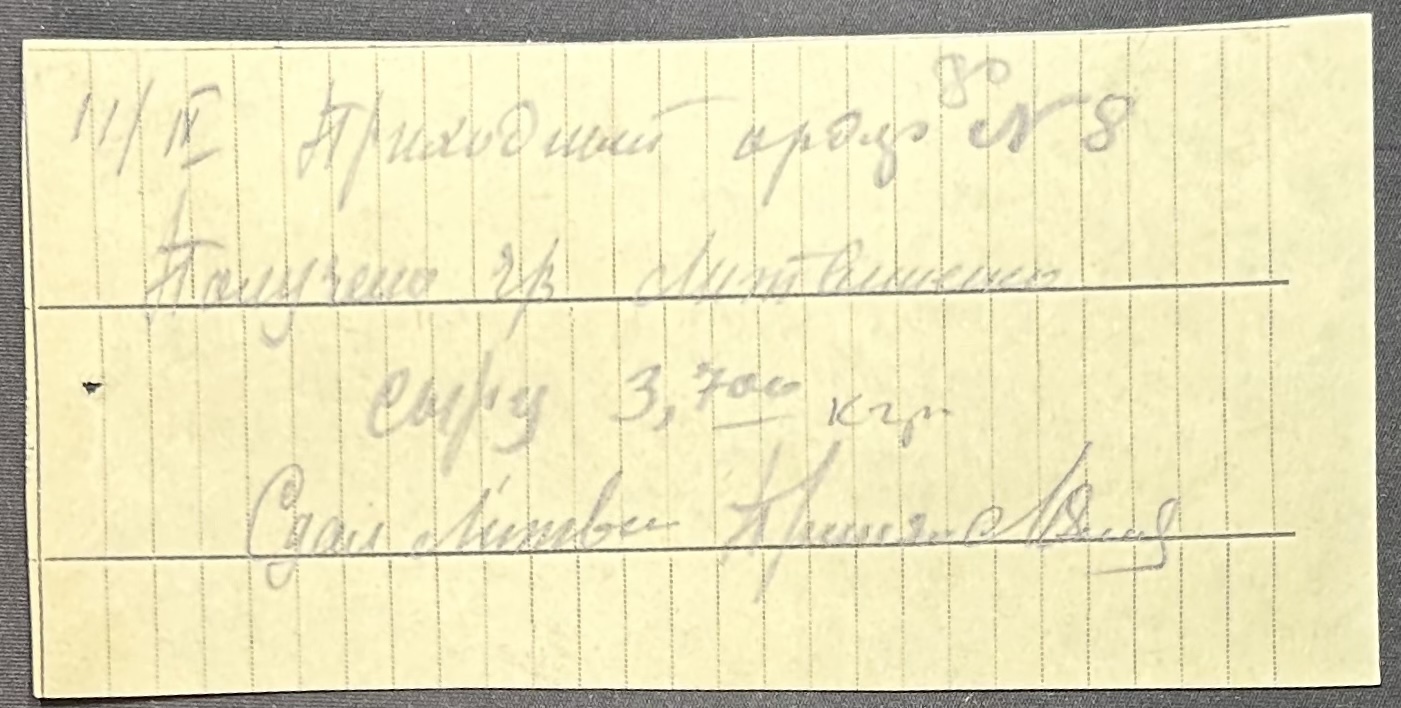 80
11/IV Приходный ордер № 8
Получено гр Литвиненко
сыру 3,700 кгр
Сдал Литви Принял